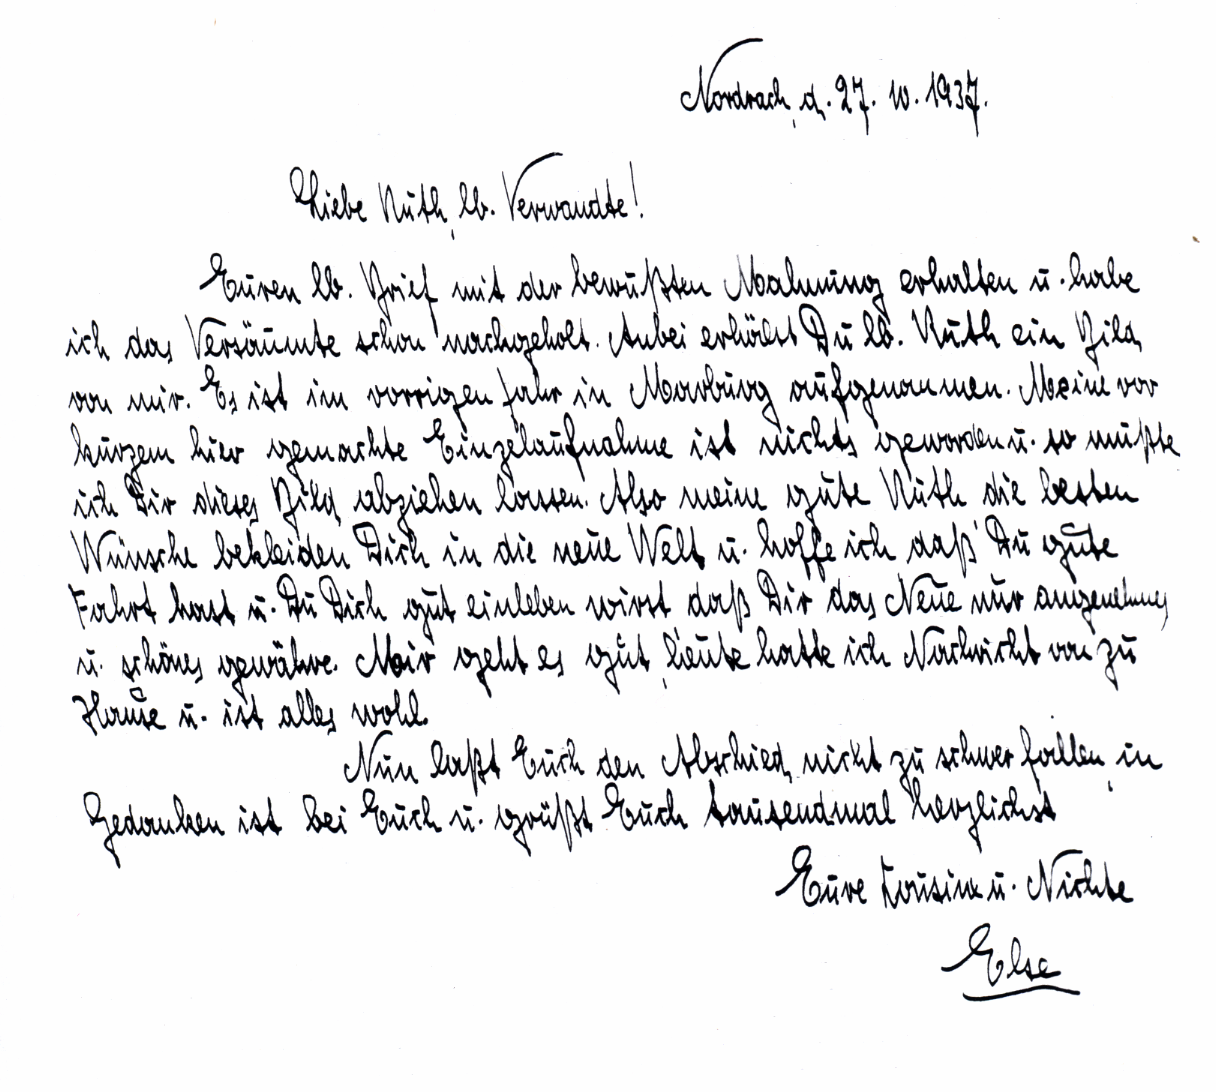 Nordrach, d. 27. 10. 1937.
Liebe Ruth, lb. Verwandte!
Euren lb. Brief mit der bewußten Mahnung erhalten u. habe
ich das Versäumte schon nachgeholt. Anbei erhälst Du lb. Ruth ein Bild
von mir. Es ist im vorrigen Jahr in Marburg aufgenommen. Meine vor
kurzem hier gemachte Einzelaufnahme ist nichts geworden u. so mußte
ich Dir dieses Bild abziehen lassen. Also meine gute Ruth die besten
Wünsche bekleiden Dich in die neue Welt u. hoffe ich daß Du gute
Fahrt hast u. Du Dich gut einleben wirst daß Dir das Neue nur angenehmes
u. schönes gewähre. Mir geht es gut, heute hatte ich Nachricht von zu
Hause u. ist alles wohl.
Nun laßt Euch den Abschied nicht zu schwer fallen, in
Gedanken ist bei Euch u. grüßt Euch tausendmal herzlichst
Eure Kousine u. Nichte
Else